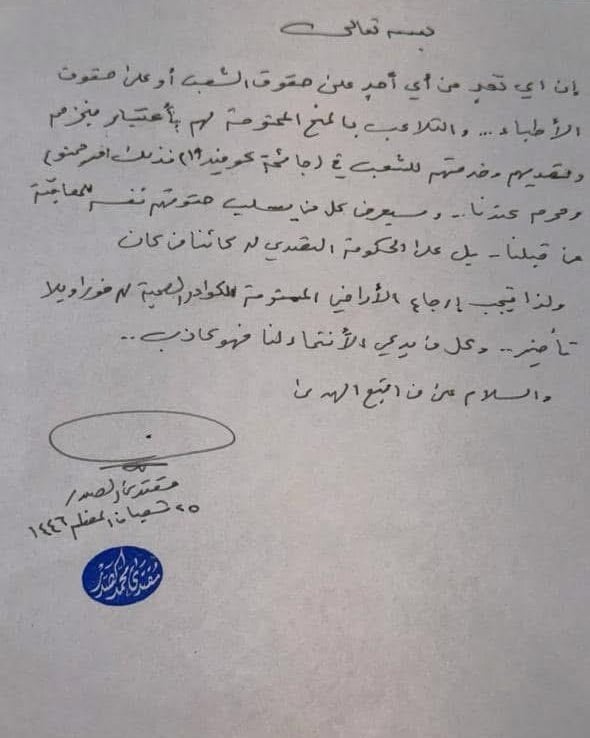 بسمه تعالى
إن اي تعدٍ من أي أحدٍ على حقوق الشعب أو على حقوق
الأطباء ... والتلاعب بالمنح الممنوحة لهم بأعتبار منجزهم
وتقديمهم وخدمتهم للشعب في (جائحة كوفيد ١٩) فذلك امر ممنوع
ومحرم عندنا .. وسيعرض كل من يسلب حقوقهم نفسه للمعاقبة
من قبلنا - بل على الحكومة التصدي له كائناً من كان
ولذا فيجب إرجاع الأراضي الممنوحة للكوادر الصحية لهم فوراً وبلا
تأخير .. وكل من يدعي الأنتماء لنا فهو كاذب ..
والسلام على من اتبع الهدى
مقتدى الصدر
٢٥ شعبان المعظم ١٤٤٦
مقتدى محمد الصدر